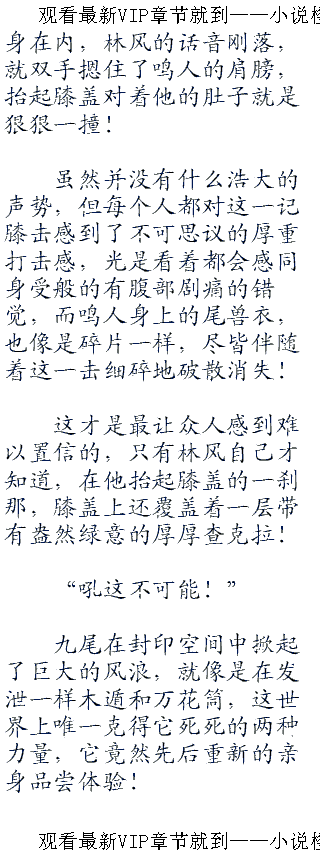 观看最新VIP章节就到——小说检
身在内，林风的话音刚落，
就双手摁住了鸣人的肩膀，
抬起膝盖对着他的肚子就是
狠狠一撞！
虽然并没有什么浩大的
声势，但每个人都对这一记
膝击感到了不可思议的厚重
打击感，光是看着都会感同
身受般的有腹部剧痛的错
觉，而鸣人身上的尾兽衣，
也像是碎片一样，尽皆伴随
着这一击细碎地破散消失！
这才是最让众人感到难
以置信的，只有林风自己才
知道，在他抬起膝盖的一刹
那，膝盖上还覆盖着一层带
有盎然绿意的厚厚查克拉！
“吼这不可能！”
九尾在封印空间中掀起
了巨大的风浪，就像是在发
泄一样木遁和万花筒，这世
界上唯一克得它死死的两种
力量，它竟然先后重新的亲
身品尝体验！
观看最新VIP章节就到——小说检